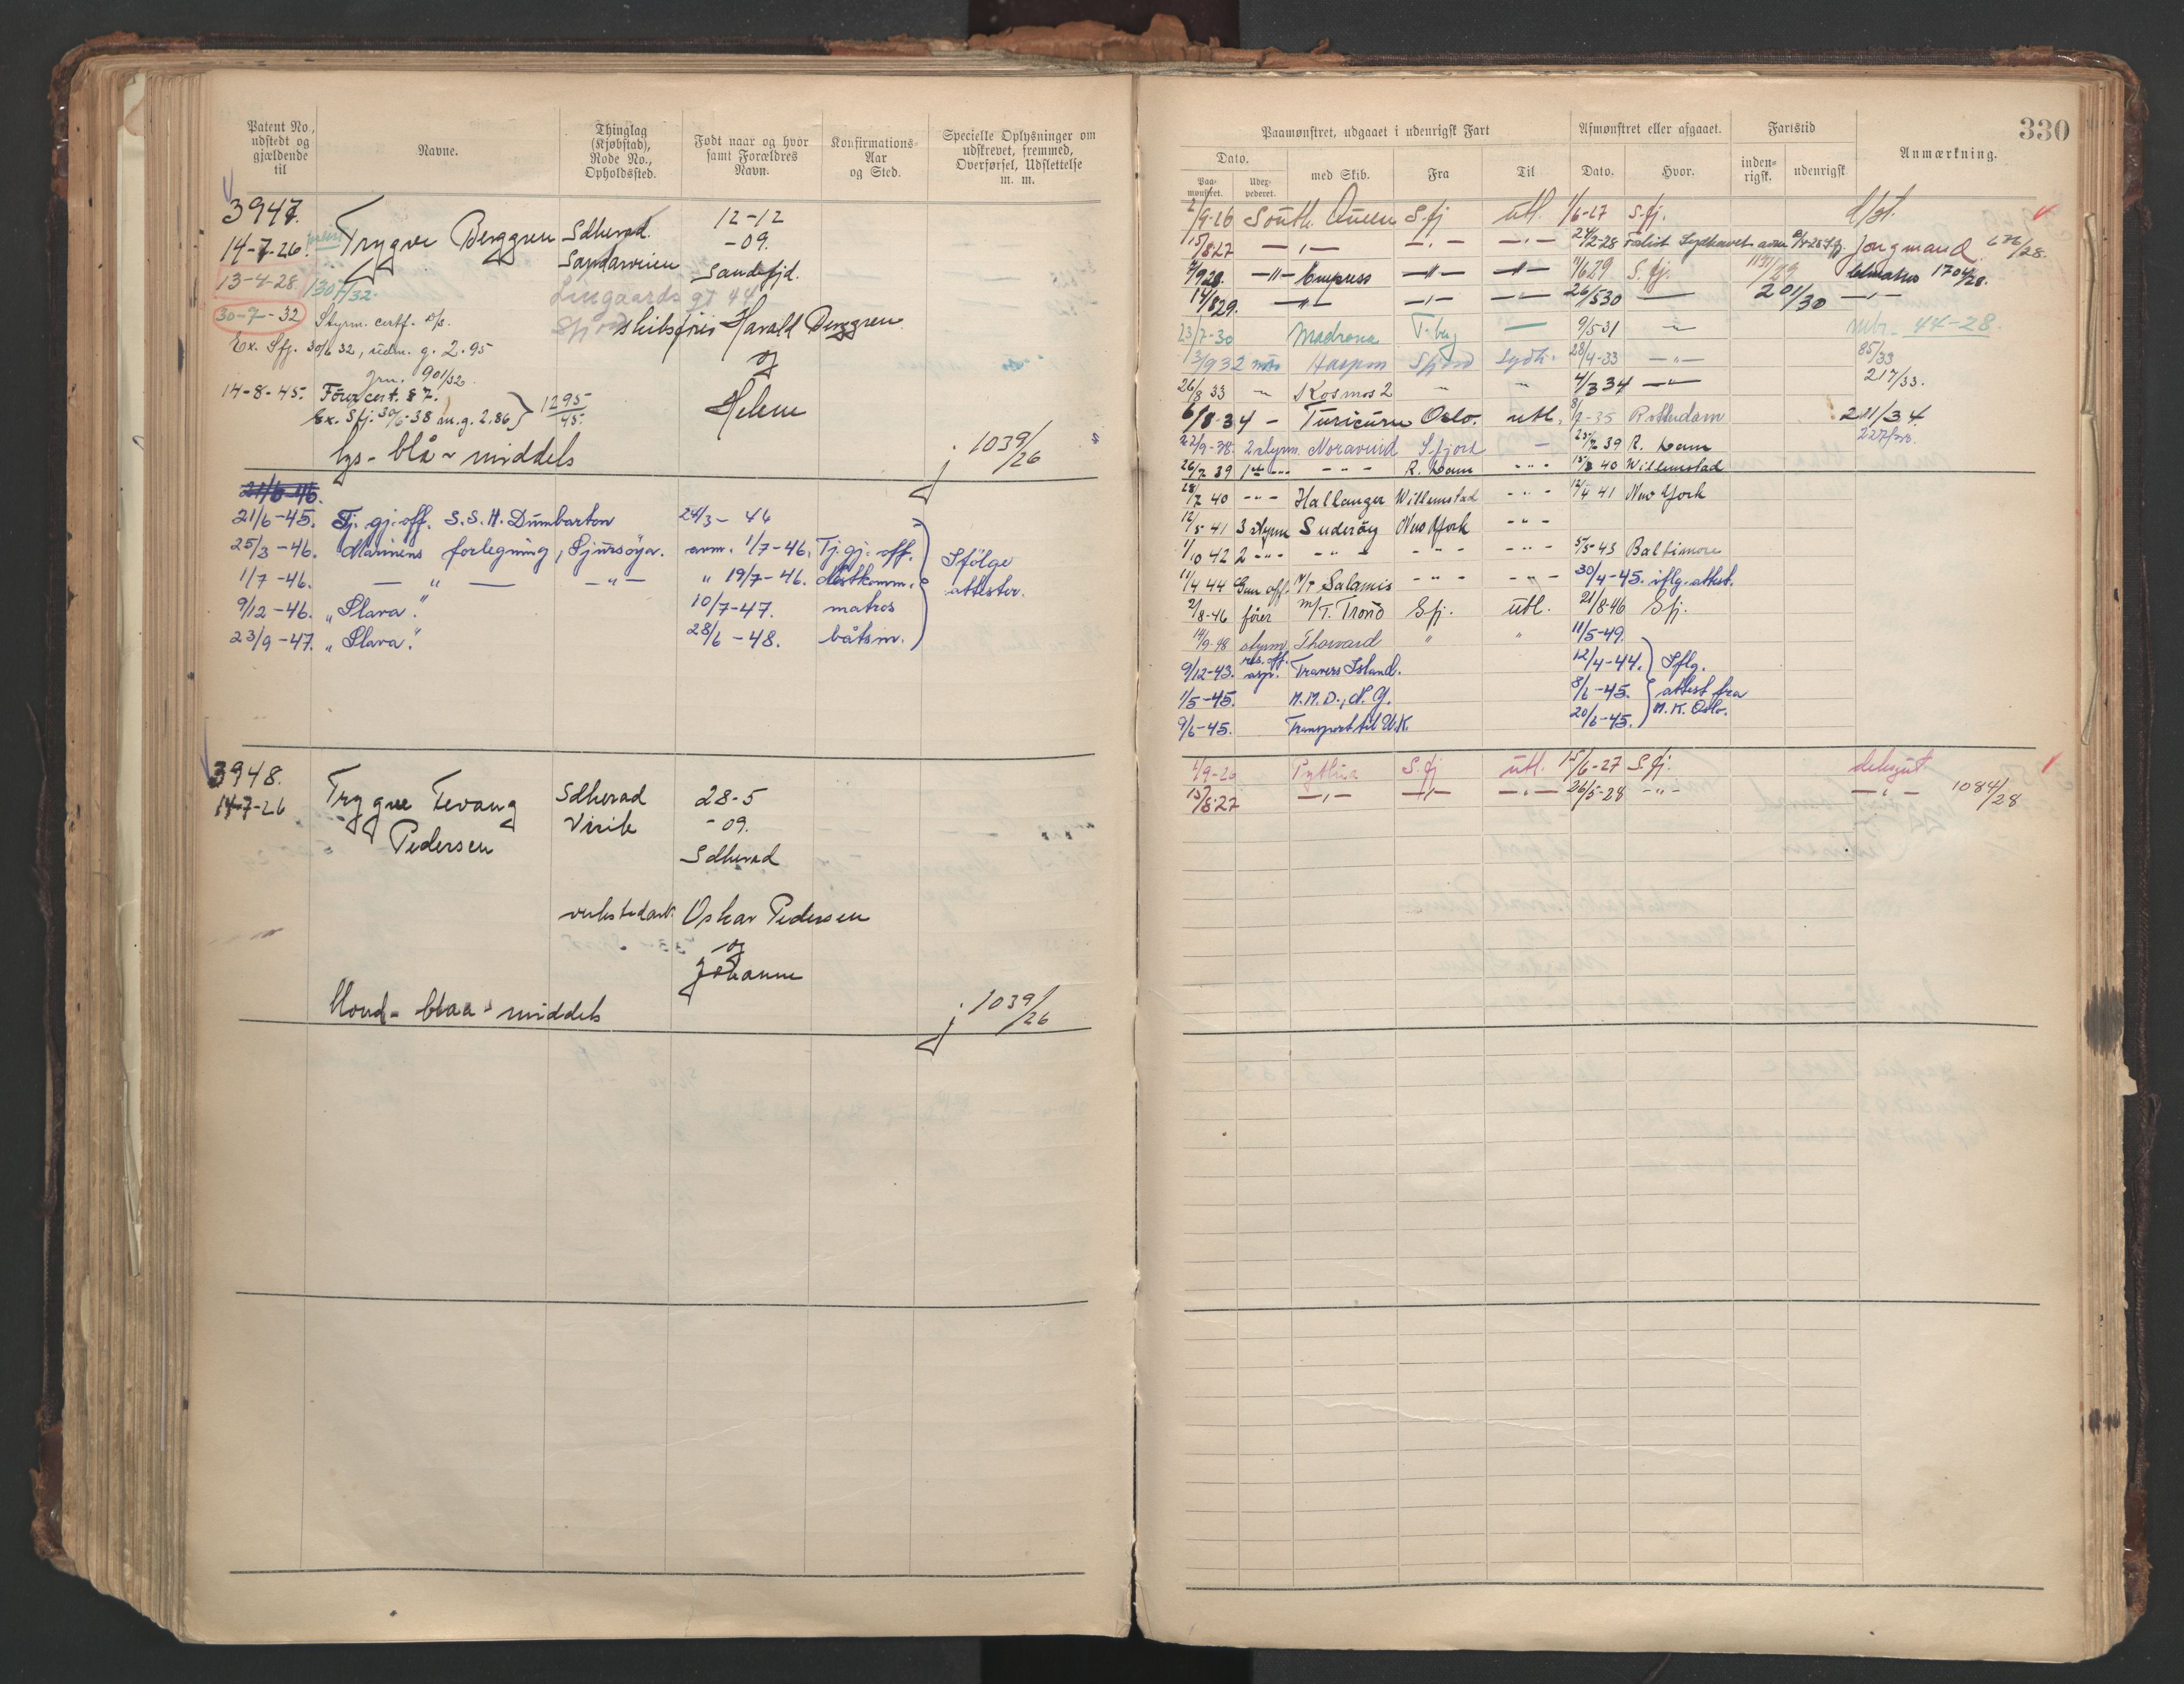 Patent No.,
udstedt og
gjældende
til
Navne.
Thinglag
(Kjøbstad),
Rode No.,
Opholdssted.
Født naar og hvor
samt Forældres
Navn.
Konfirmations-
Aar
og Sted.
Specielle Oplysninger om
udskrevet, fremmed,
Overførsel, Udslettelse
m. m.
3947.
14-7-26.
13-4-28
30-7-32
1307/32.
Trygve Berggren
Sdherad.
Sandarveien
Lingaards gt 44
12-12
-09.
Sandefjd.
skibsfører Harald Berggren
og
Helene
Styrm. certf.
Ex. Sfj. 30/6 32, udm. g. 2.95
Jrn. 901/32
14-8-45. Förercert. § 7.
Ex. Sfj. 30/6-38 m.g. 2,86 } 1295/45.
lys - blå - middels
j. 1039/26
21/6-46.
21/6-45. Tj. gj. off. S.S.H. Dumbarton 24/3-46
25/3-46. Marinens forlegning, Sjursøya. avm. 1/7-46. Tj. gj. off.
1/7-46. — " — — " — " 19/7-46. Nestkomm.
9/12-46. "Slava". 10/7-47. matros
23/9-47. "Slava". 28/6-48. båtsm.
Ifölge
attester.
3948.
14-7-26
Trygve Tevang
Pedersen
Sdherad
Virik
28-5
-09.
Sdherad
verkstedarb. Oskar Pedersen
og
Johanne
blond - blaa - middels
j. 1039/26
330
Paamønstret, udgaaet i udenrigsk Fart
Afmønstret eller afgaaet.
Fartstid
Anmærkning.
Dato.
Paa-
mønstret.
Udex-
pederet.
med Skib.
Fra
Til
Dato.
Hvor.
inden-
rigsk.
udenrigsk
2/9-26 South. Queen S.fj utl. 1/6-27 S.fj.
15/8 27 — " — — " — — " — 24/2-28 Forlist Sydhavet Jungmand. 676/28.
7/9 28. — " — Empress — " — — " — 11/6 29 S.fj. 1131/29 1704/28.
14/8 29. — " — — " — — " — 26/5 30 — 201/30 — " —
23/7-30 Madrona T.berg — 9/5-31 — mtr. 44-28.
3/9 32 Haspon Sfjord Sydh. 28/4-33 — " — 85/33
26/8 33 " Kosmos 2 " " 4/3 34 — " — 217/33.
6/8-34 - Turicum Oslo. utl. 8/2-35 Rotterdam 221/34.
22/9-38. 2 styrm. Noravind S.fjord — 25/2 39 R. dam
26/2 39 1ste " - " - R. dam - " - 15/3 40 Willemstad
28/7 40 - " - Hallanger Willemstad - " - 12/4 41 New York
12/5 41 3 styrm Suderöy New York - " -
1/10 42 2 - " - - " - - " - - " - 5/5-43 Baltimore
11/4 44 Gun off. M/T Salamis - " - - " - 30/4-45. iflg. attest.
2/8-46 förer M/T. Tronö Sfj. utl. 21/8-46 Sfj.
14/9-48 styrm. Thorvard " " 11/5-49.
9/12-43. res. off. asp. Travers Island. 12/4-44.
1/5-45. M.M.D., N.Y. 8/6-45.
9/6-45. Transport til U.K. 20/6-45.
Iflg.
attest fra
M.K. Oslo.
1/9-26 Pythia S.fj utl. 15/6-27 S.fj. deksgut
15/8-27 — " — — " — — " — 26/5-28 - " - — " — 1084/28